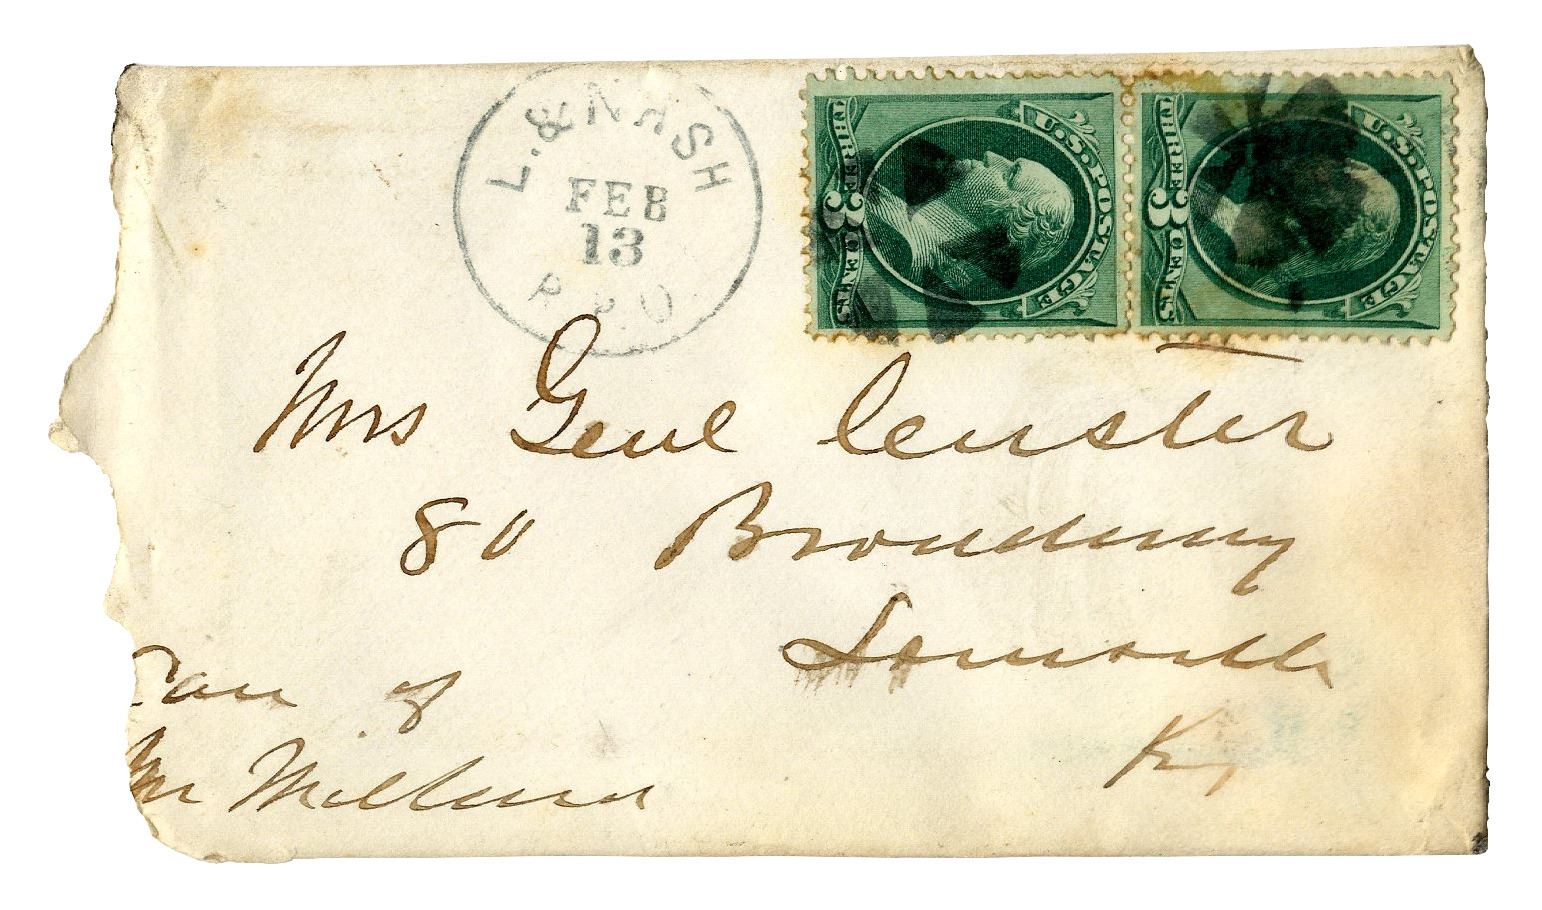 L. & NASH
FEB
13
R.P.O
U.S. POSTAGE
THREE 3 CENTS
U.S. POSTAGE
THREE 3 CENTS
Mrs Genl Custer
80 Broadway
Louisville
Ky
Care of
Mr